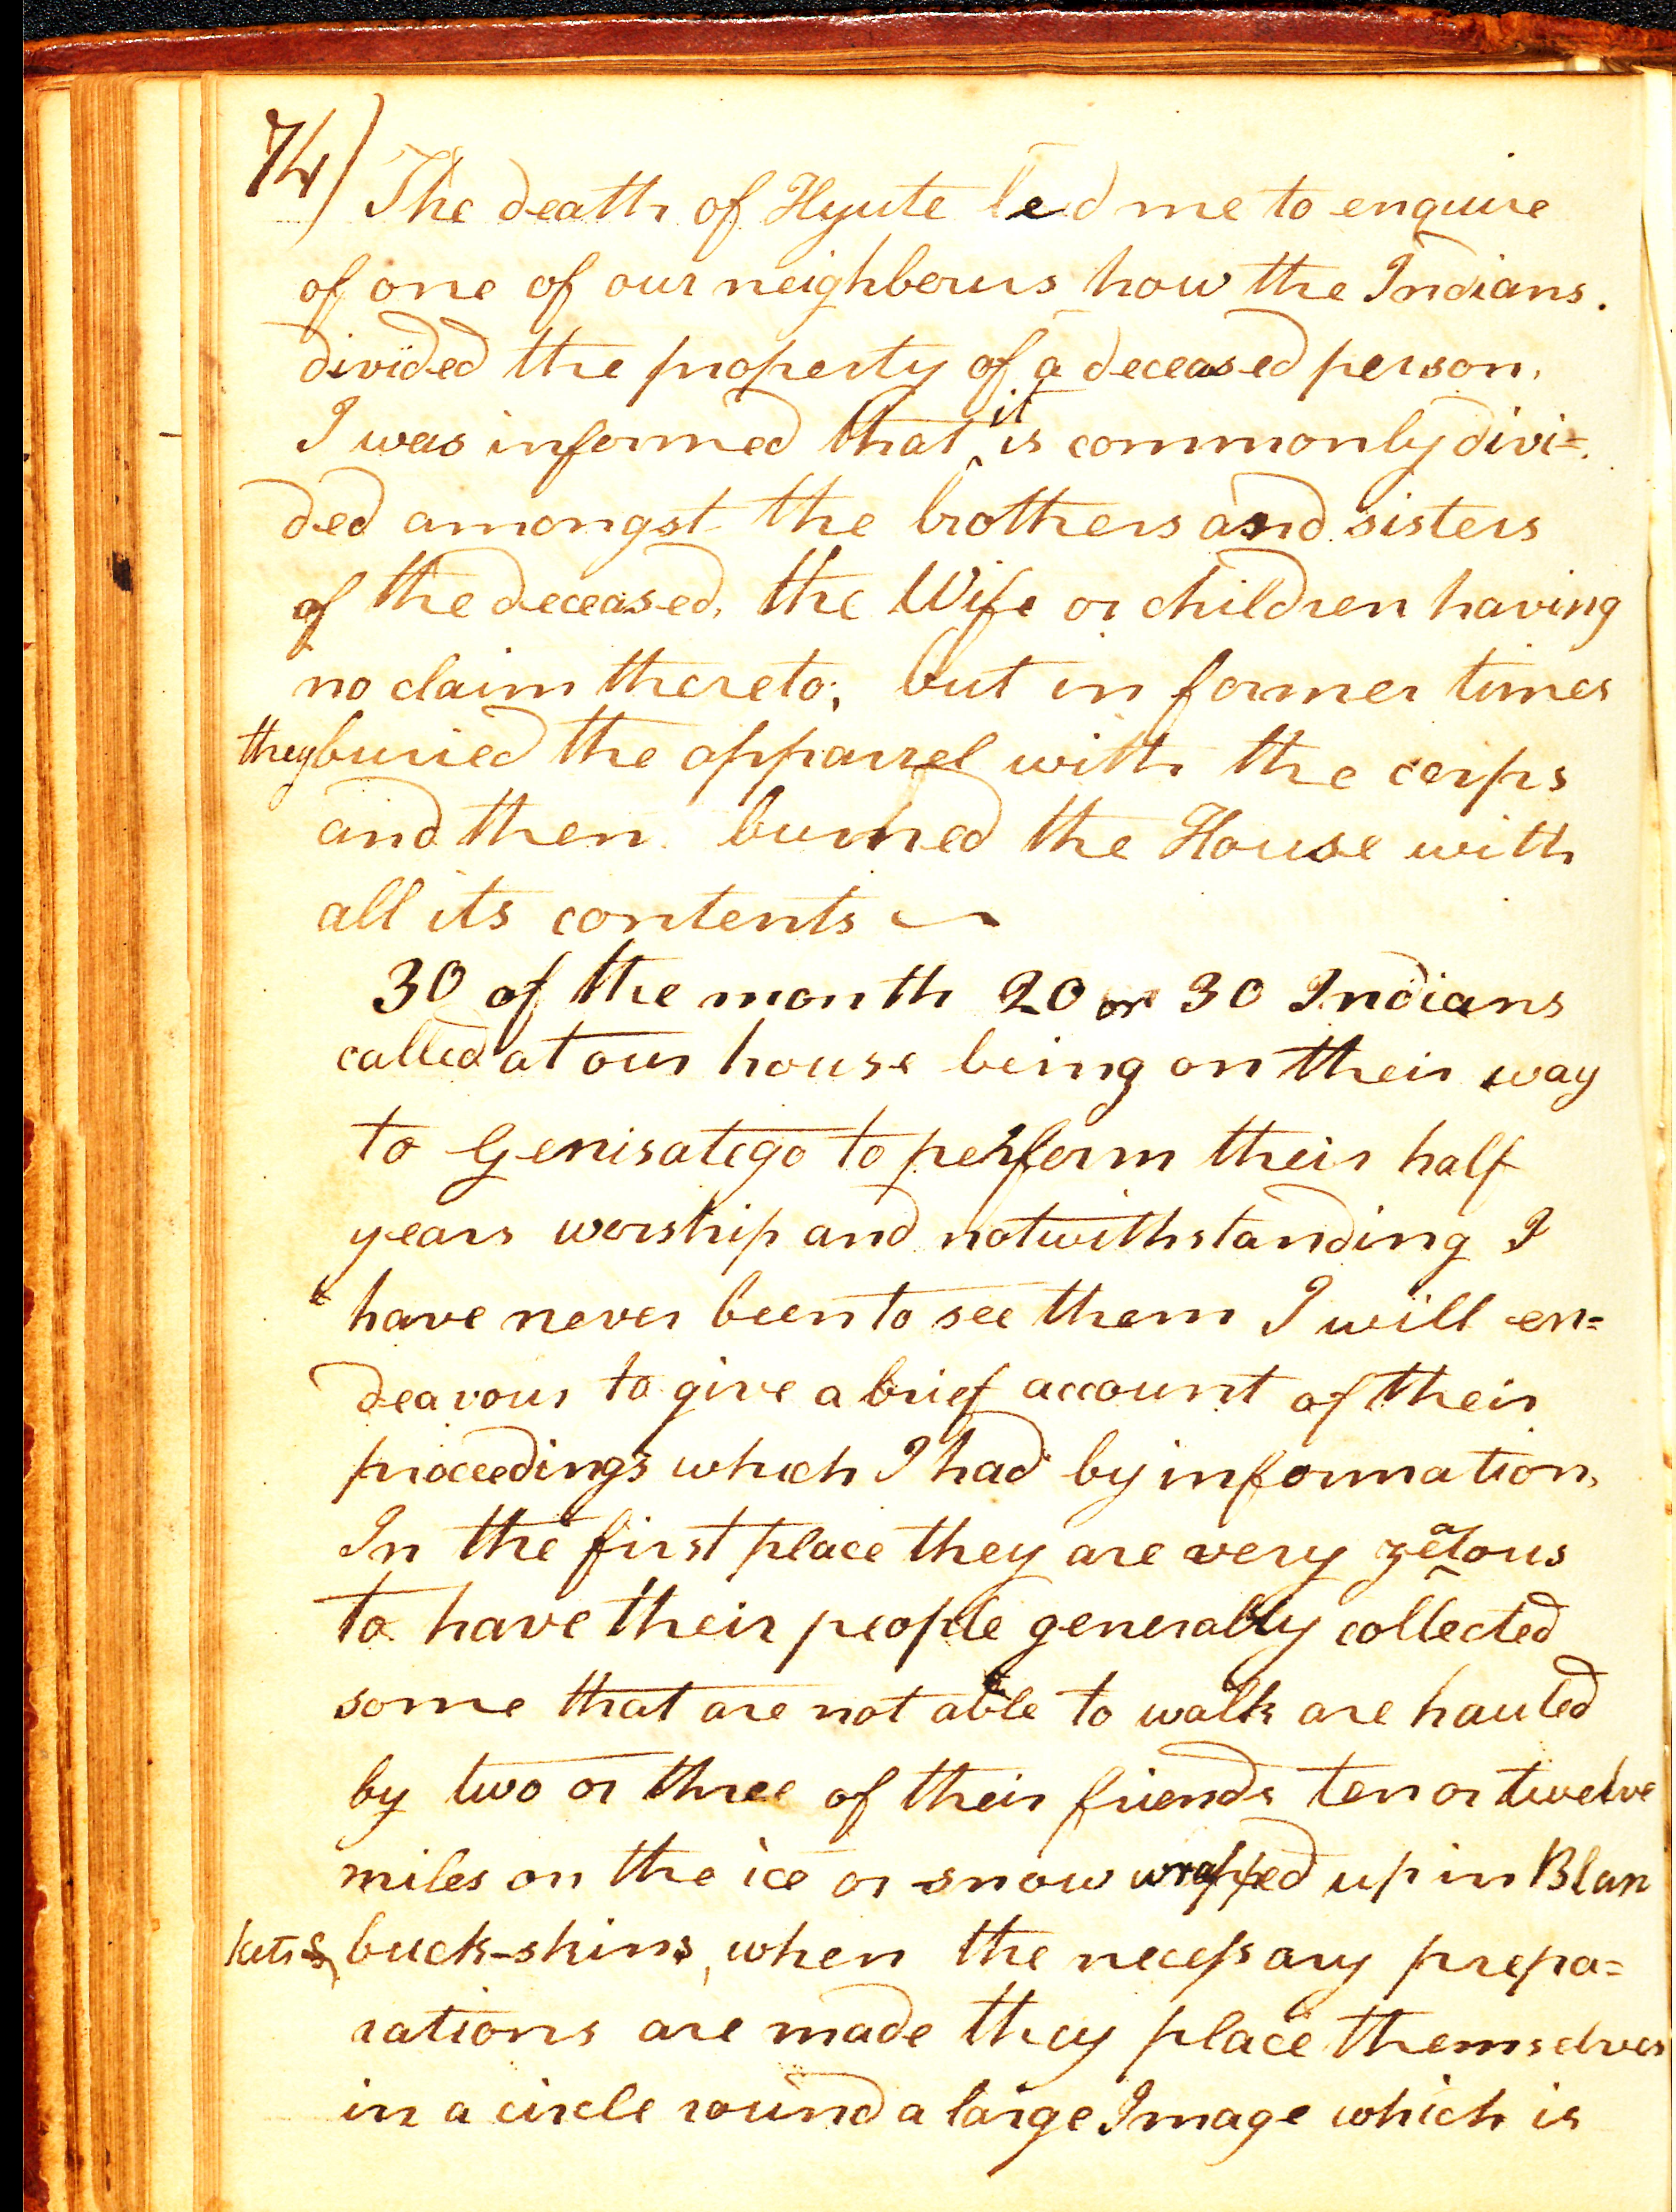 74)
The death of Hyute led me to enquire
of one of our neighbours how the Indians.
divided the property of a deceased person,
I was informed that it is commonly divi=
ded amongst the brothers and sisters
of the deceased, the Wife or children having
no claim thereto; but in former times
they buried the apparrel with the corps
and then burned the House with
all its contents
30 of the month 20 or 30 Indians
called at our house being on their way
to Genisatego to perform their half
years worship and notwithstanding I
have never been to see them I will en=
deavour to give a brief account of their
proceedings which I had by information,
In the first place they are very zealous
to have their people generally collected
some that are not able to walk are hauled
by two or three of their friends ten or twelve
miles on the ice or snow wrapped up in Blan
kets & buck-skins, when the necessary prepa=
rations are made they place themselves
in a circle round a large Image which is